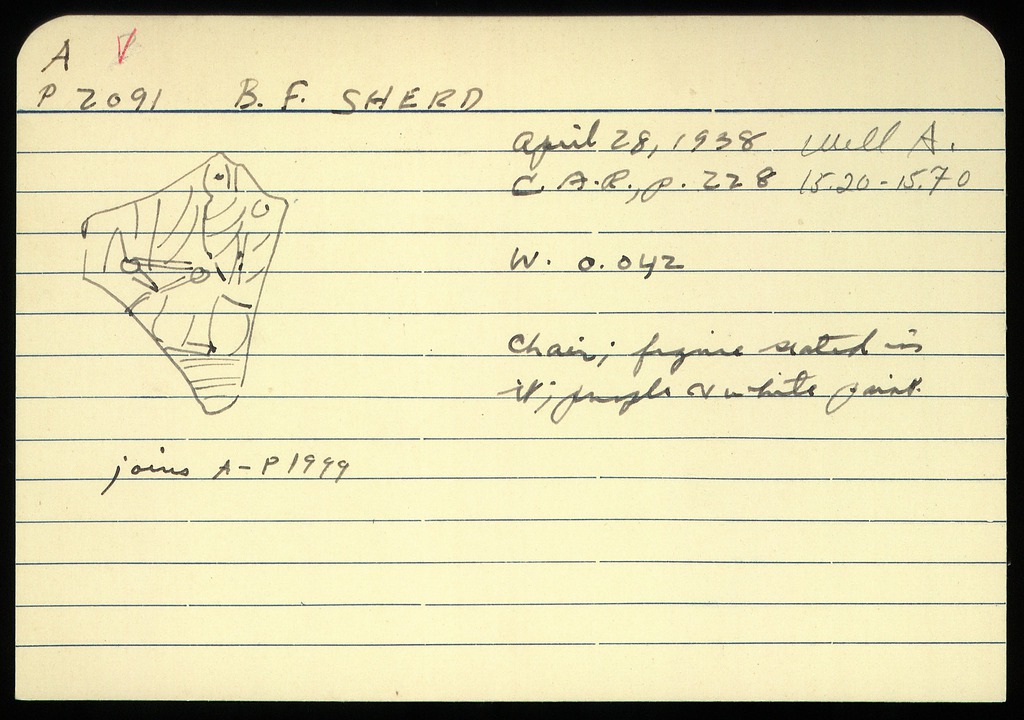 A
P 2091 B. F. SHERD
April 28, 1938 Well A.
C. A. R., p. 228 15.20-15.70
W. 0.042
Chair; figure seated in
it; purple & white paint.
joins A-P 1999